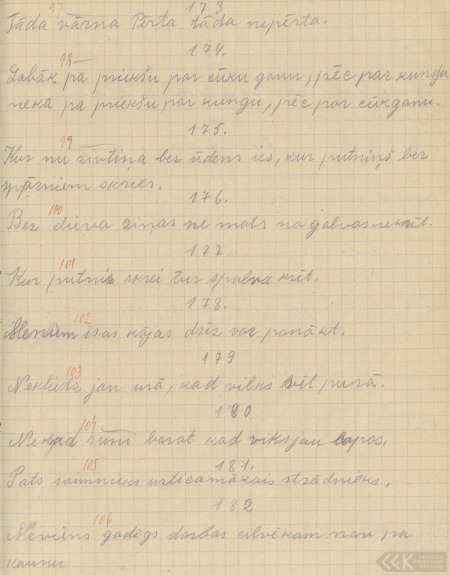 97 173
Tāda vārna Pērta tāda nepērta.
174.
98
Labāk pa priekšu par cūku ganu, pēc par kungu
nekā pa priekšu par kungu, pēc par cūkganu.
175.
99
Kur nu zivtiņa bez ūdens ies, kur putniņš bez
spārniem skries.
176.
100
Bez dieva ziņas ne mats no galvas nekrīt.
177
101
Kur putnis skrei tur spalva krīt.
178.
102
Meniem īsas kājas drīz var panākt.
179
103
Nekliedz jau urā, kad vilks vil purā.
180
104
Nekad zūmi barat kad vilks jau lopos.
105 181.
Pats saimnieks uzticamākais strādnieks.
182
106
Neviens godīgs darbas cilvēkam nav pa
kaunu